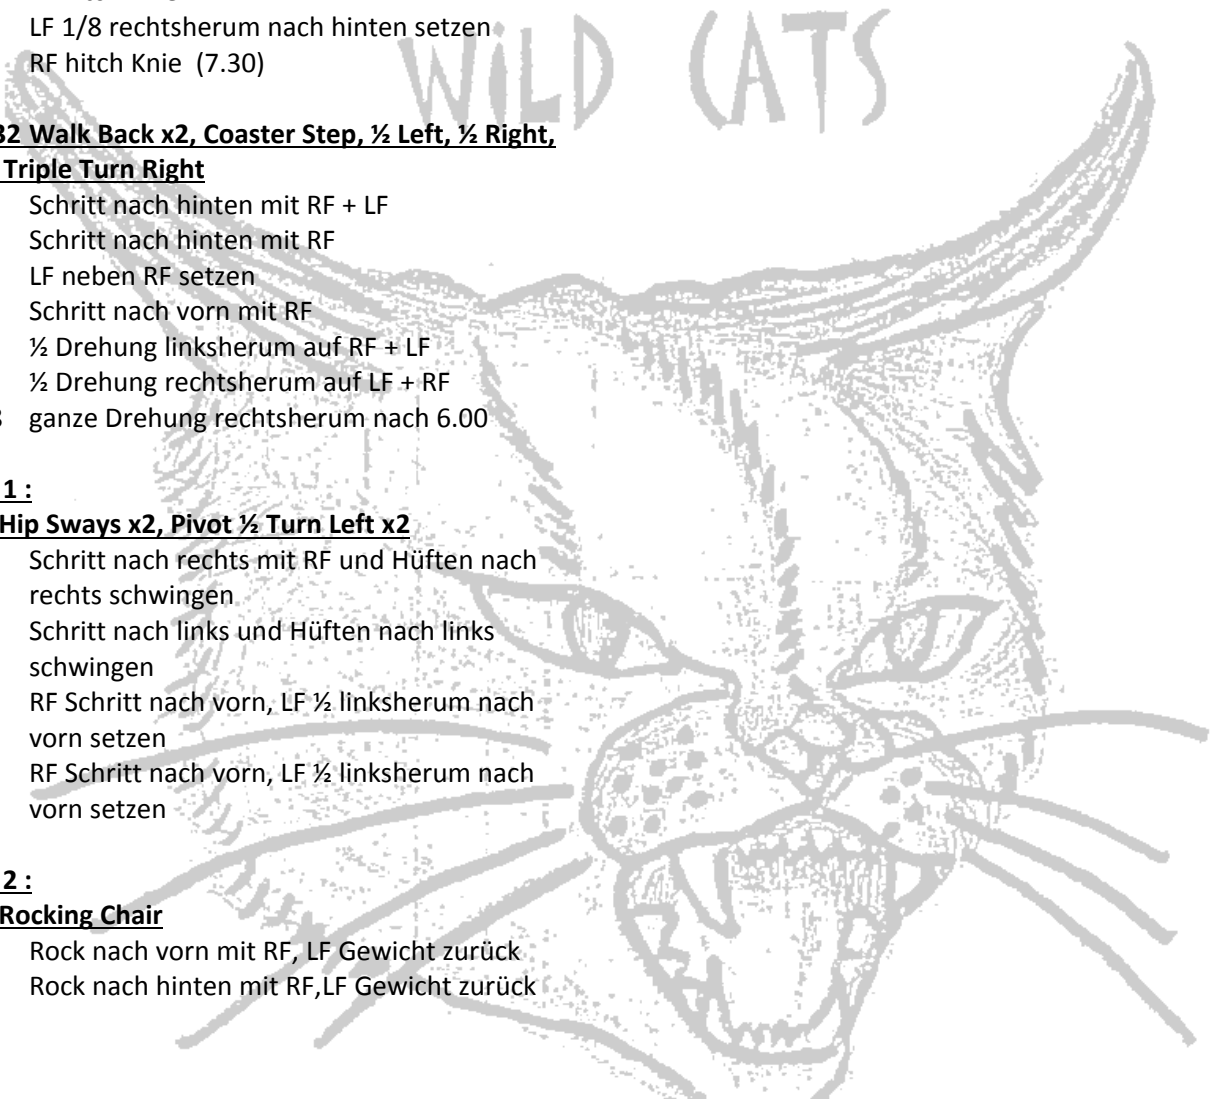 WiLD CATS
LF 1/8 rechtsherum nach hinten setzen
RF hitch Knie (7.30)
32 Walk Back x2, Coaster Step, ½ Left, ½ Right,
Triple Turn Right
Schritt nach hinten mit RF + LF
Schritt nach hinten mit RF
LF neben RF setzen
Schritt nach vorn mit RF
½ Drehung linksherum auf RF + LF
½ Drehung rechtsherum auf LF + RF
ganze Drehung rechtsherum nach 6.00
1 :
Hip Sways x2, Pivot ½ Turn Left x2
Schritt nach rechts mit RF und Hüften nach
rechts schwingen
Schritt nach links und Hüften nach links
schwingen
RF Schritt nach vorn, LF ½ linksherum nach
vorn setzen
RF Schritt nach vorn, LF ½ linksherum nach
vorn setzen
2 :
Rocking Chair
Rock nach vorn mit RF, LF Gewicht zurück
Rock nach hinten mit RF,LF Gewicht zurück